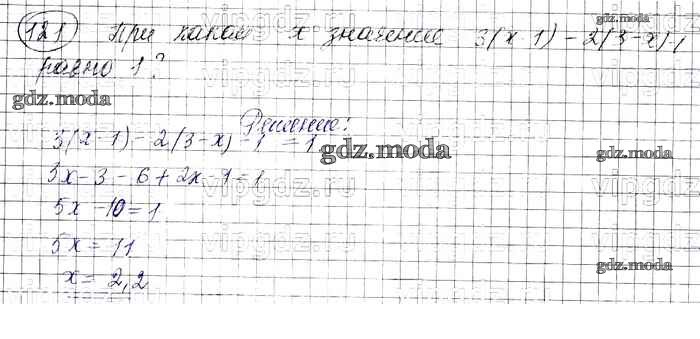 121 При каком x значение 3(x-1) - 2(3-x) - 1
равно 1?
Решение:
3(x-1) - 2(3-x) - 1 = 1
3x - 3 - 6 + 2x - 1 = 1
5x - 10 = 1
5x = 11
x = 2,2
gdz.moda
gdz.moda
gdz.moda
gdz.moda
gdz.moda
vipgdz.ru
vipgdz.ru
vipgdz.ru
vipgdz.ru